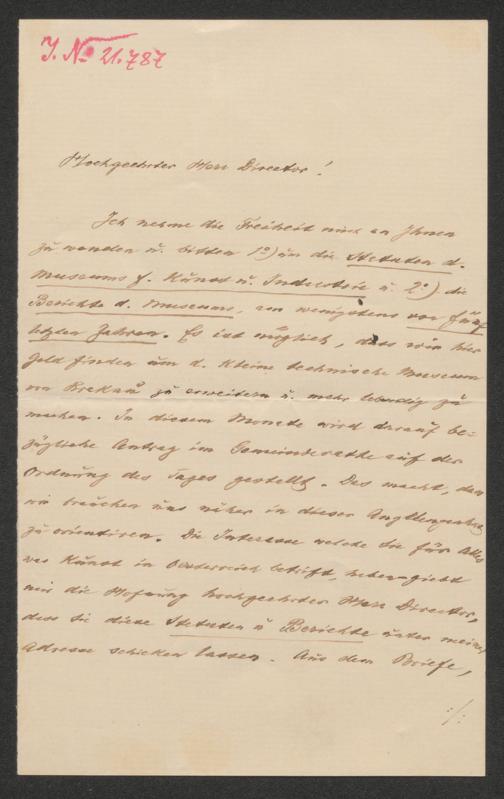 J. No 21.787
Hochgeehrter Herr Director!
Ich nehme die Freiheit mich an Ihnen
zu wenden u. bitten 1o) um die Statuten d.
Museums f. Kunst u. Industrie u. 2o) die
Berichte d. Museums, am wenigstens von fünf
letzten Jahren. Es ist möglich, dass wir hier
Geld finden um d. kleine technische Museum
von Krakau zu erweitern u. mehr lebendig zu
machen. In diesem Monate wird darauf be=
zügliche Antrag im Gemeinderathe auf der
Ordnung des Tages gestellt. Das macht, dass
wir brauchen uns näher in dieser Angelegenheit
zu orientiren. Die Interesse welche Sie für Alles
was Kunst in Oesterreich betrift, haben giebt
mir die Hofnung hochgeehrter Herr Director,
dass Sie diese Statuten u Berichte unter meiner
Adresse schicken lassen. Aus dem Briefe,
:/: